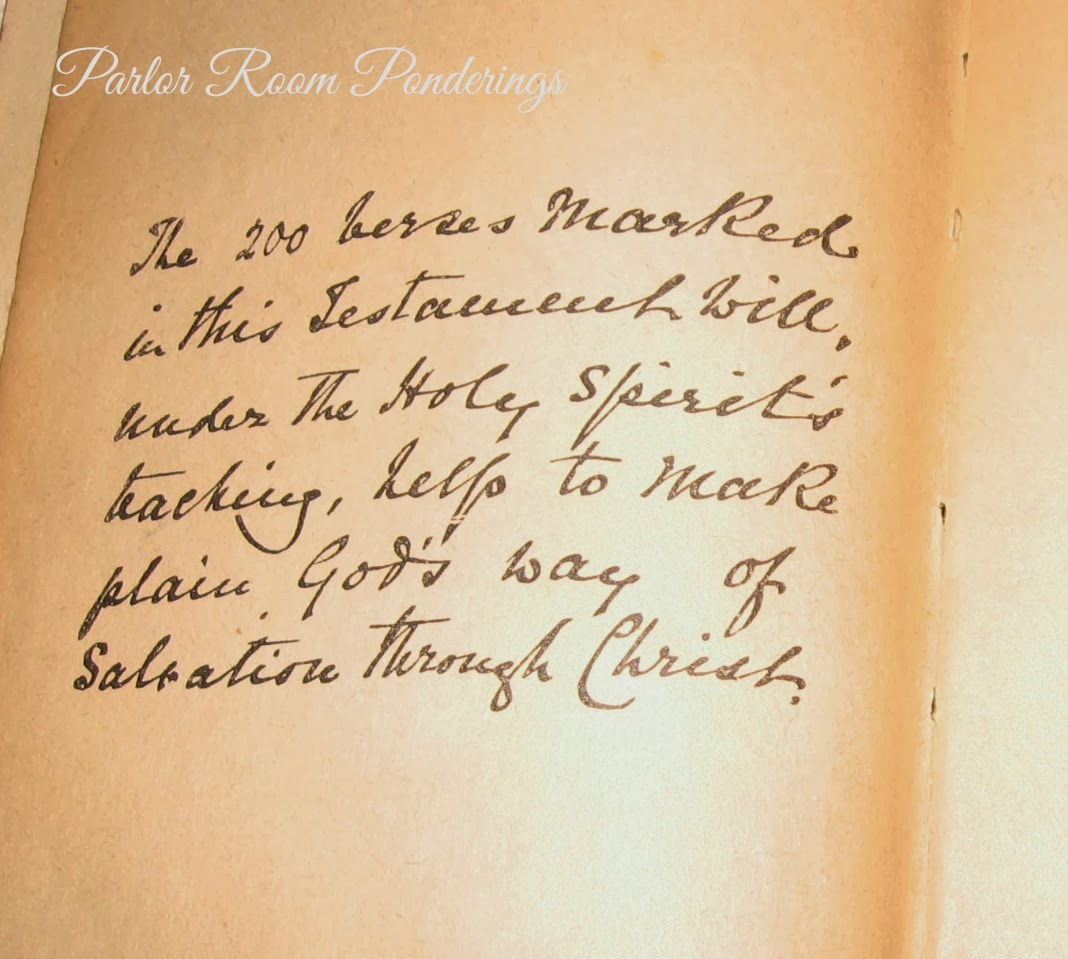 Parlor Room Ponderings
The 200 verses Marked
in this Testament Will,
under The Holy Spirit's
teaching, help to Make
plain God's way of
Salvation Through Christ.